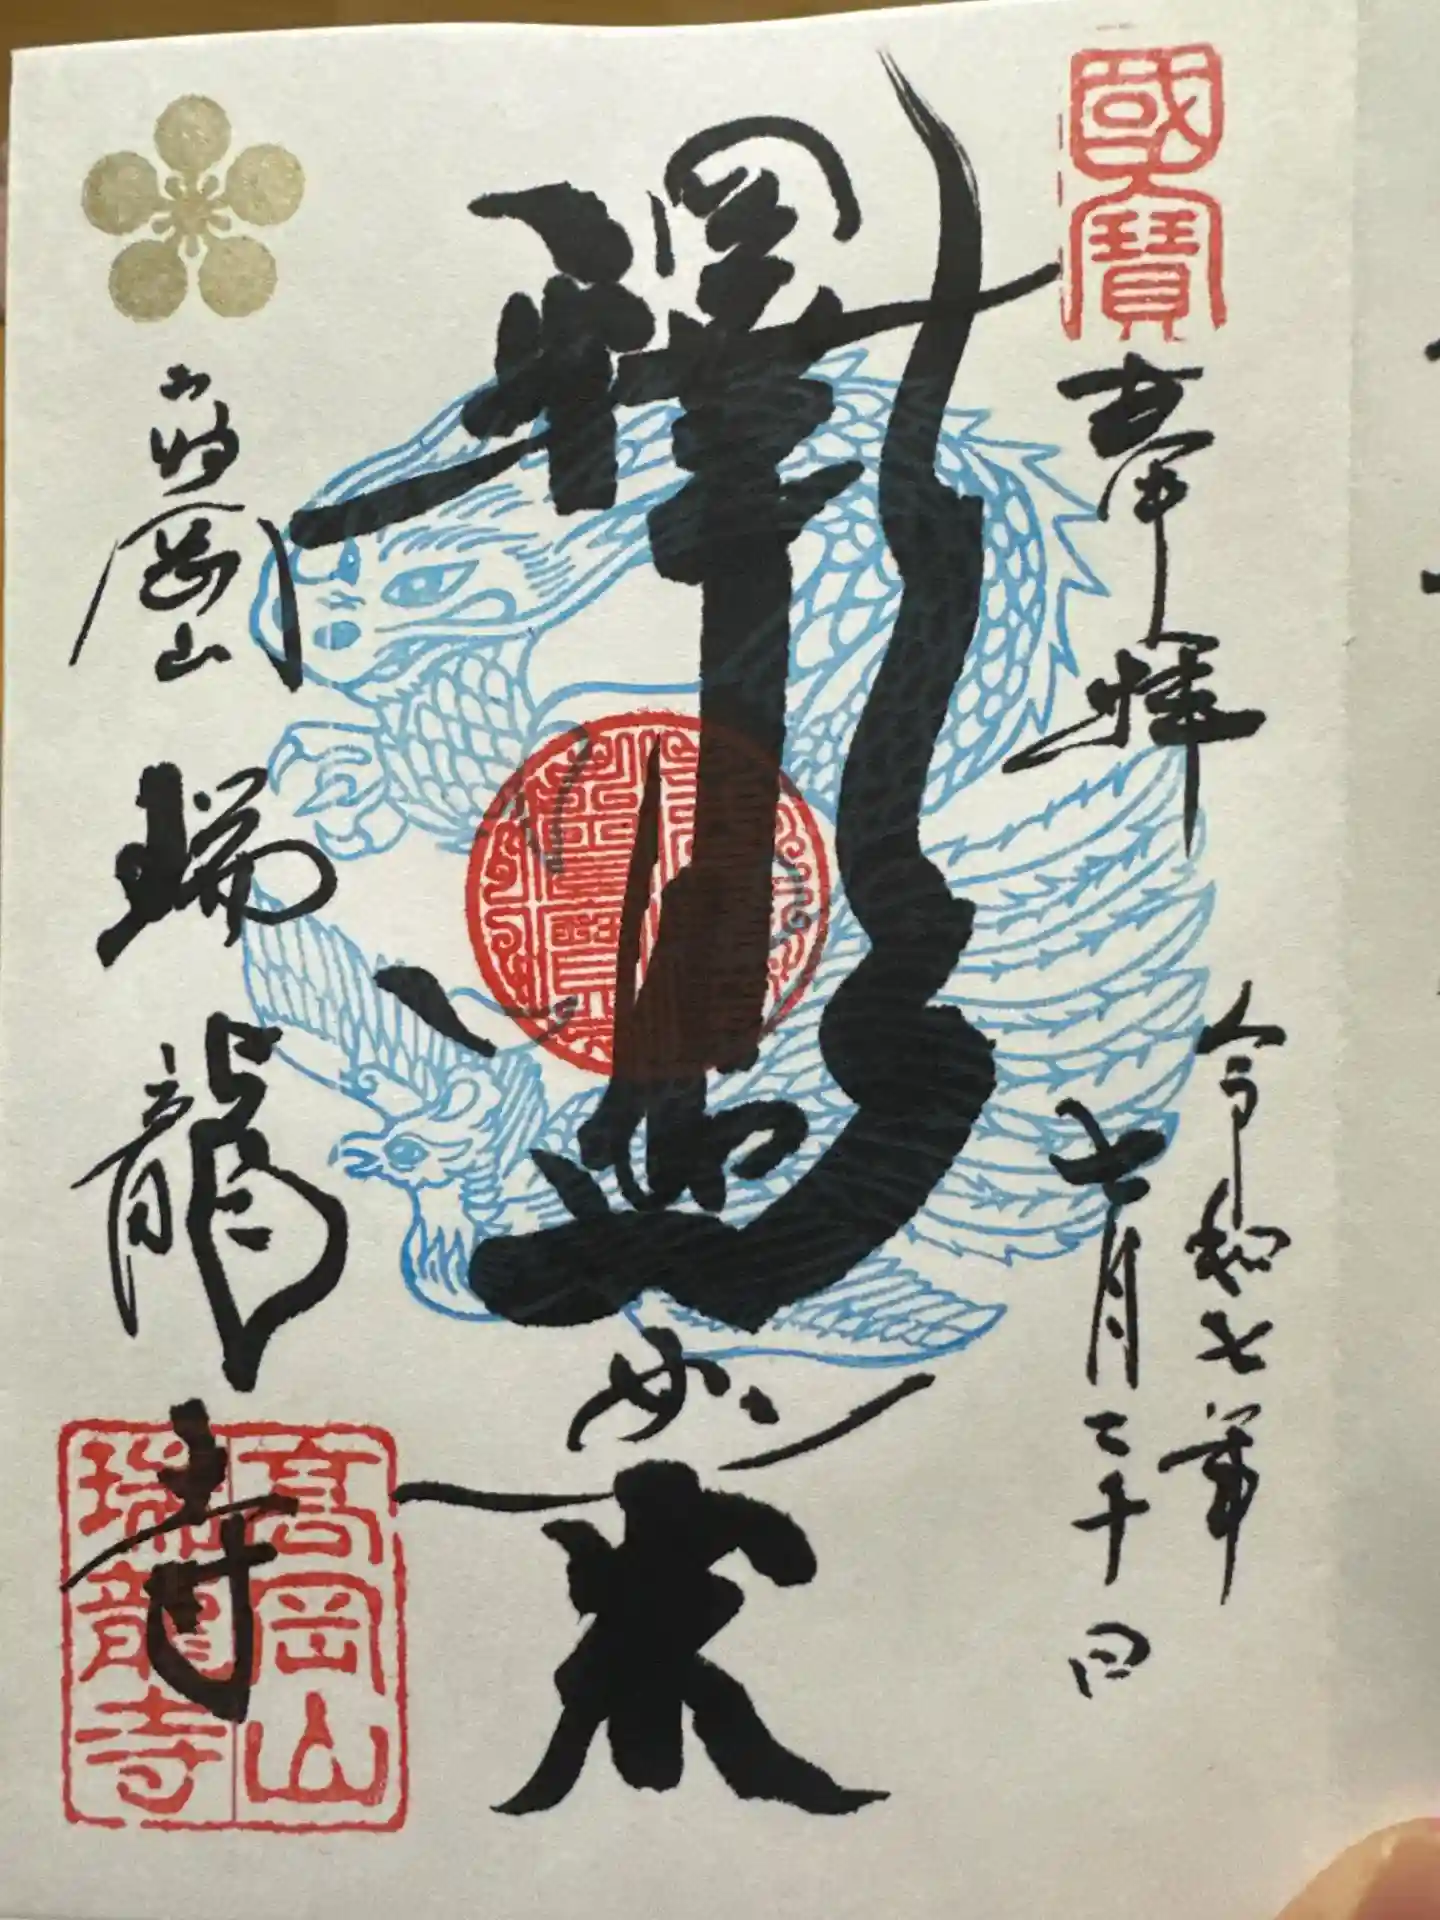 國寶
奉拝
令和七年
七月二十日
釋迦如来
高岡山
瑞龍寺
高岡山
瑞龍寺